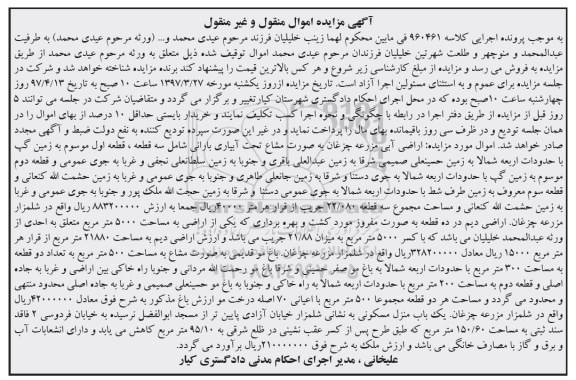 آگهی مزایده اموال منقول و غیر منقول
به موجب پرونده اجرایی کلاسه ۹۶۰۴۶۱ فی مابین محکوم لهما زینب خلیلیان فرزند مرحوم عیدی محمد و... (ورثه مرحوم عیدی محمد) به طرفیت
عبدالمحمد و منوچهر و طلعت شهرتین خلیلیان فرزندان مرحوم عیدی محمد اموال توقیف شده ذیل متعلق به ورثه مرحوم عیدی محمد از طریق
مزایده به فروش می رسد و مزایده از مبلغ کارشناسی زیر شروع و هر کس بالاترین قیمت را پیشنهاد کند برنده مزایده شناخته خواهد شد و شرکت در
جلسه مزایده برای عموم و به استثنای مسئولین اجرا آزاد است. تاریخ مزایده ازروز یکشنبه مورخه ۱۳۹۷/۳/۲۷ ساعت ۱۰ صبح به تاریخ ۹۷/۴/۱۳ روز
چهارشنبه ساعت ۱۰صبح بوده که در محل اجرای احکام دادگستری شهرستان کیار تغییر و برگزار می گردد و متقاضیان شرکت در جلسه می توانند ۵
روز قبل از مزایده از طریق دفتر اجرا در رابطه با چگونگی و نحوه اجرا کسب تکلیف نمایند و خریدار بایستی حداقل ۱۰ درصد از بهای اموال را در
همان جلسه تودیع و در ظرف سی روز باقیمانده بهای مال را پرداخت نمایند و در غیر این صورت سپرده تودیع کننده به نفع دولت ضبط و آگهی مجدد
صادر خواهد شد. اموال مورد مزایده: اراضی آبی مزرعه چزغان به صورت مشاع تحت آبیاری بارانی شامل سه قطعه ، قطعه اول موسوم به زمین گپ
با حدودات اربعه شمالا به زمین حسینعلی صمیمی شرقا به زمین عبدالعلی باقری و جنوبا به زمین سلطانعلی نجفی و غربا به جوی عمومی و قطعه دوم
موسوم به زمین گپ با حدودات اربعه شمالا به جوی دستنا و شرقا به زمین جانعلی طاهری و جنوبا به جوی عمومی و غربا به زمین حشمت الله کنعانی و
قطعه سوم معروف به زمین طرف شط با حدودات اربعه شمالا به جوی عمومی دستنا و شرقا به زمین حجت الله ملک پور و جنوبا به جوی عمومی و غربا
به زمین حشمت الله کنعانی و مساحت مجموع سه قطعه ۲۲/۰۸۰ جریب از قرار هر متر ۴۰۰۰۰ ریال جمعا به ارزش ۸۸۳۲۰۰۰۰۰ ریال واقع در شلمزار
مزرعه چزغان. اراضی دیم در ده قطعه به صورت مفروز مورد کشت و بهره برداری که یکی از اراضی به مساحت ۵۰۰۰ متر مربع متعلق به احدی از
ورثه عبدالمحمد خلیلیان می باشد که با کسر ۵۰۰۰ متر مربع به میزان ۲۱/۸۸ جریب می باشد و ارزش اراضی دیم به مساحت ۲۱۸۸۰ متر مربع از قرار هر
متر مربع ۱۵۰۰۰ ریال معادل ۳۲۸۲۰۰۰۰۰ریال واقع در شلمزار مزرعه چزغان. باغ مو قدیمی به صورت مشاع به مساحت ۵۰۰ متر مربع به تعداد دو قطعه
به مساحت ۳۰۰ متر مربع با حدودات اربعه شمالا به باغ مو صفر حسینی و شرقا باغ مو رحمت اله مردانی و جنوبا راه خاکی بین اراضی و غربا به جاده
اصلی و قطعه دوم به مساحت ۲۰۰ متر مربع با حدودات اربعه شمالا به راه خاکی و جنوبا به باغ مو حسینعلی صمیمی و غربا به جاده اصلی محدود منتهی
و محدود می گردد و مساحت هر دو قطعه مجموعا ۵۰۰ متر مربع با اعیانی ۷۰اصله درخت مو ارزش باغ مذکور به شرح فوق معادل ۴۲۰۰۰۰۰۰ریال
واقع در شلمزار مزرعه چزغان. یک باب منزل مسکونی به نشانی شلمزار خیابان آزادی پایین تر از مسجد ابوالفضل نرسیده به خیابان فردوسی ۲ فاقد
سند ثبتی به مساحت ۱۵۰/۶۰ متر مربع که طبق طرح پس از کسر عقب نشینی در ظلع شرقی به ۹۵/۱۰ متر مربع کاهش می یابد و دارای انشعابات آب
و برق و گاز با مصارف خانگی می باشد و ارزش ملک به شرح فوق ۲۱۰۰۰۰۰۰۰ریال برآورد می گردد.
علیخانی ، مدیر اجرای احکام مدنی دادگستری کیار